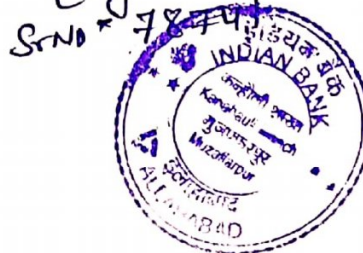 SrNo 78741
इंडियन बैंक
INDIAN BANK
शाखा
Kanahauli Branch
मुजफ्फरपुर
Muzaffarpur
इलाहाबाद
ALLAHABAD